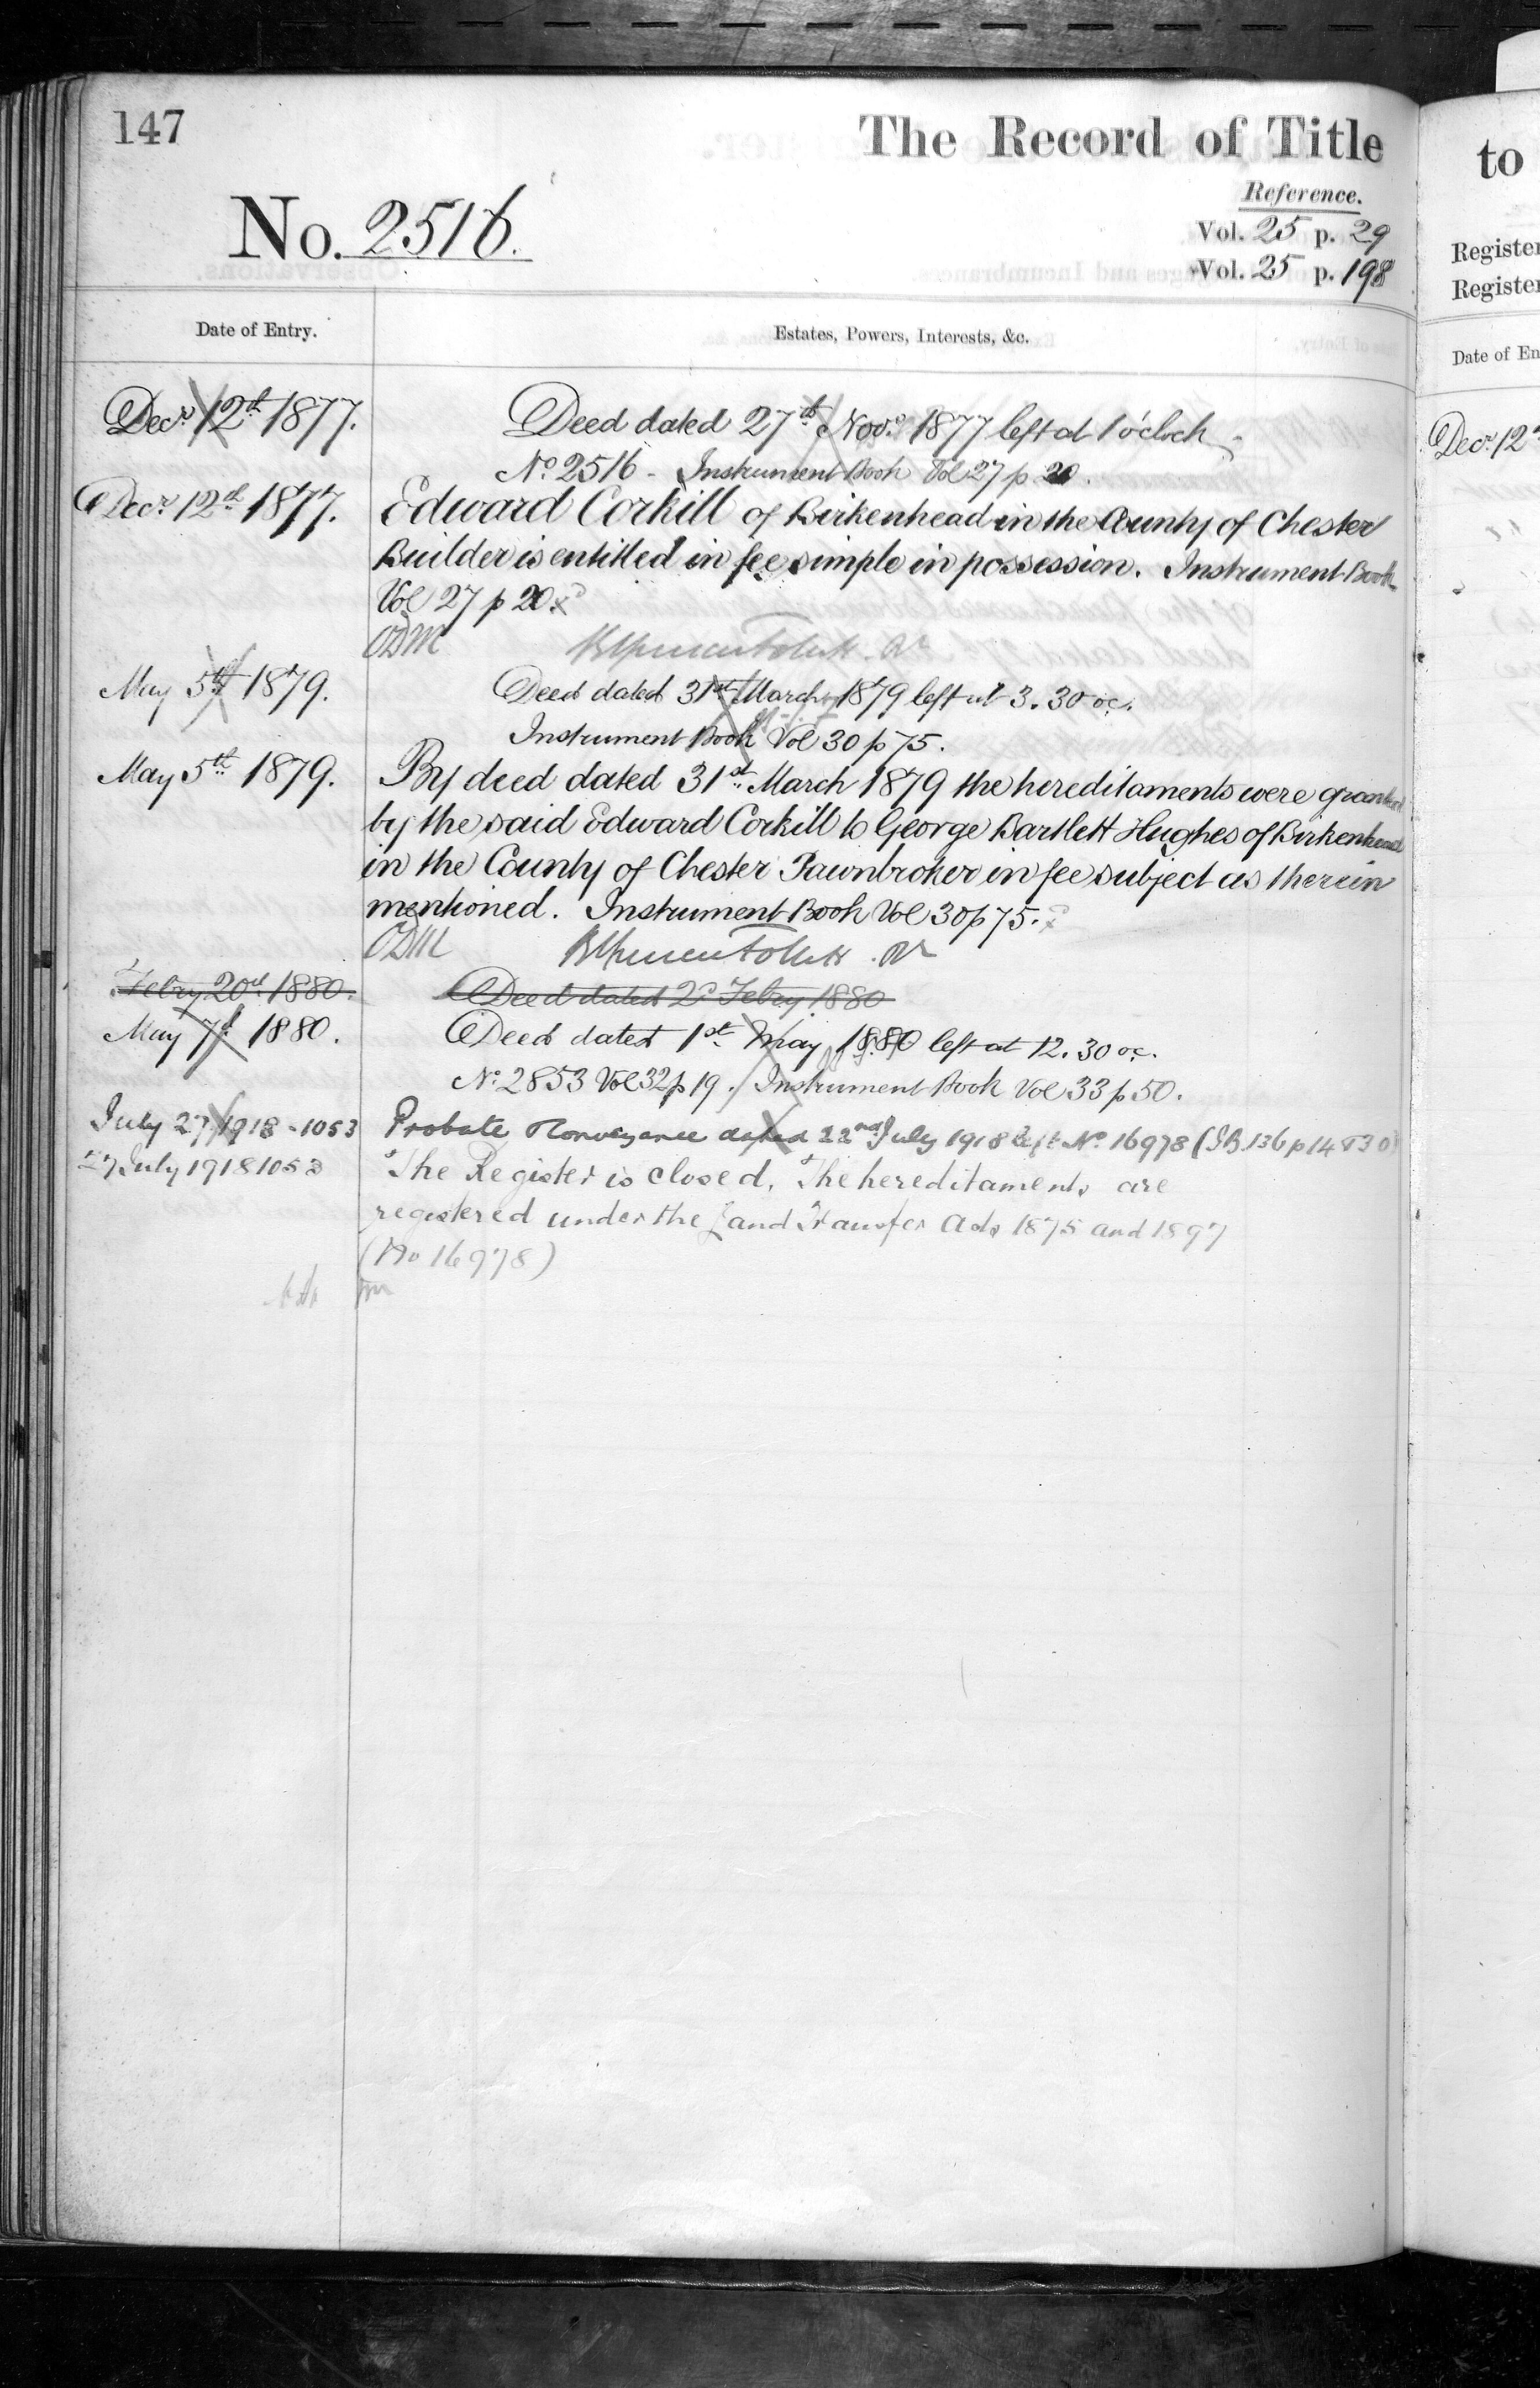 147
The Record of Title
to
Reference.
No. 2516.
Vol. 25 p. 29
Vol. 25 p. 198
Register
Register
Date of Entry.
Estates, Powers, Interests, &c.
Date of En
Decr. 12th 1877.
Deed dated 27th Novr. 1877 left at 1 o'clock
No. 2516 - Instrument Book Vol 27 p 20.
Decr. 12
Decr. 12th 1877.
Edward Corkill of Birkenhead in the County of Chester
Builder is entitled in fee simple in possession. Instrument Book
Vol 27 p 20.
ODM
May 5th 1879.
Deed dated 31st March 1879 left at 3.30 oc.
Instrument Book Vol 30 p 75.
May 5th 1879.
By deed dated 31st March 1879 the hereditaments were granted
by the said Edward Corkill to George Bartlett Hughes of Birkenhead
in the County of Chester Pawnbroker in fee subject as therein
mentioned. Instrument Book Vol 30 p 75.
ODM
Febry 20th 1880.
Deed dated 2d Febry 1880
May 7th 1880.
Deed dated 1st May 1880 left at 12.30 oc.
No. 2853 Vol 32 p 19. Instrument Book Vol 33 p 50.
July 27 1918 - 1053
Probate Conveyance dated 22nd July 1918 left No. 16978 (I.B. 136 p 14 & 30)
27 July 1918 1053
The Register is closed. The hereditaments are
registered under the Land Transfer Acts 1875 and 1897
(No 16978)